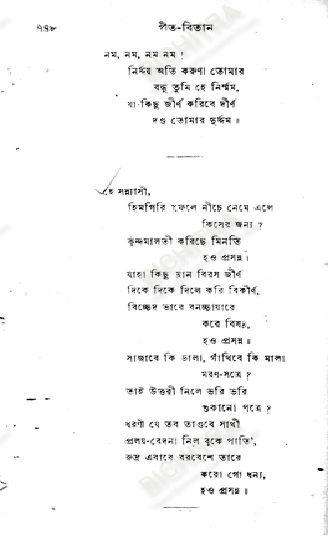 ৭৪৮ গীত-বিতান
নম, নম, নম নম !
নির্দয় অতি করুণা তোমার
বন্ধু তুমি হে নির্ম্মম,
যা-কিছু জীর্ণ করিবে দীর্ণ
দণ্ড তোমার দুর্দ্দম ॥
হে সন্ন্যাসী,
হিমগিরি ফেলে নীচে নেমে এলে
কিসের জন্য ?
কুন্দমালতী করিছে মিনতি
হও প্রসন্ন ।
যাহা কিছু ম্লান বিরস জীর্ণ
দিকে দিকে দিলে করি বিকীর্ণ,
বিচ্ছেদ ভারে বনচ্ছায়ারে
করে বিষণ্ণ,
হও প্রসন্ন ॥
সাজাবে কি ডালা, গাঁথিবে কি মালা
মরণ-সত্রে ?
তাই উত্তরী নিলে ভরি ভরি
শুকানো পত্রে ?
ধরণী যে তব তাণ্ডবে সাথী
প্রলয়-বেদনা নিল বুকে পাতি',
রুদ্র এবারে বরবেশে তারে
করো গো ধন্য,
হও প্রসন্ন ॥